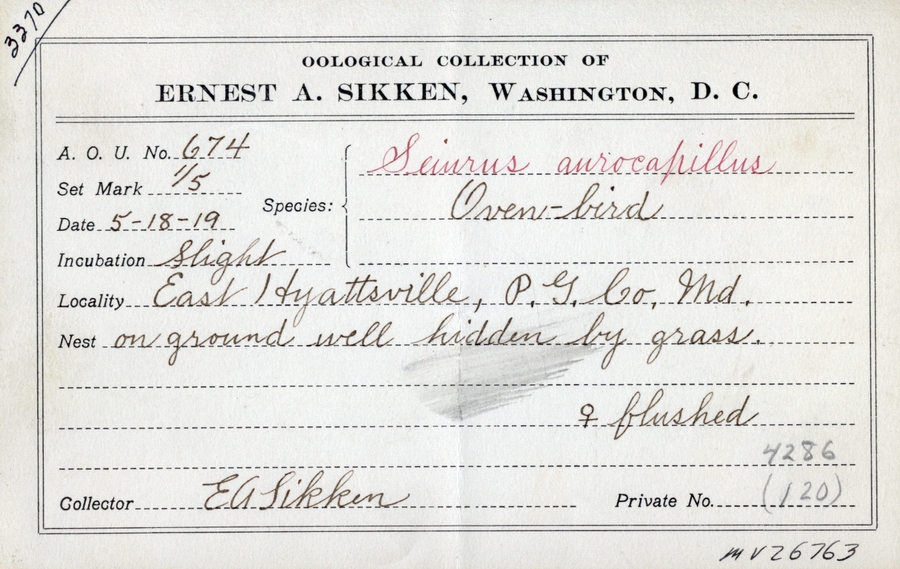 3370
OOLOGICAL COLLECTION OF
ERNEST A. SIKKEN, WASHINGTON, D. C.
A. O. U. No. 674
Set Mark 1/5
Date 5-18-19
Incubation Slight
Species: Seiurus aurocapillus
Oven-bird
Locality East Hyattsville, P. G. Co, Md.
Nest on ground well hidden by grass.
♀ flushed
Collector EA Sikken
Private No. 4286
(120)
MV26763